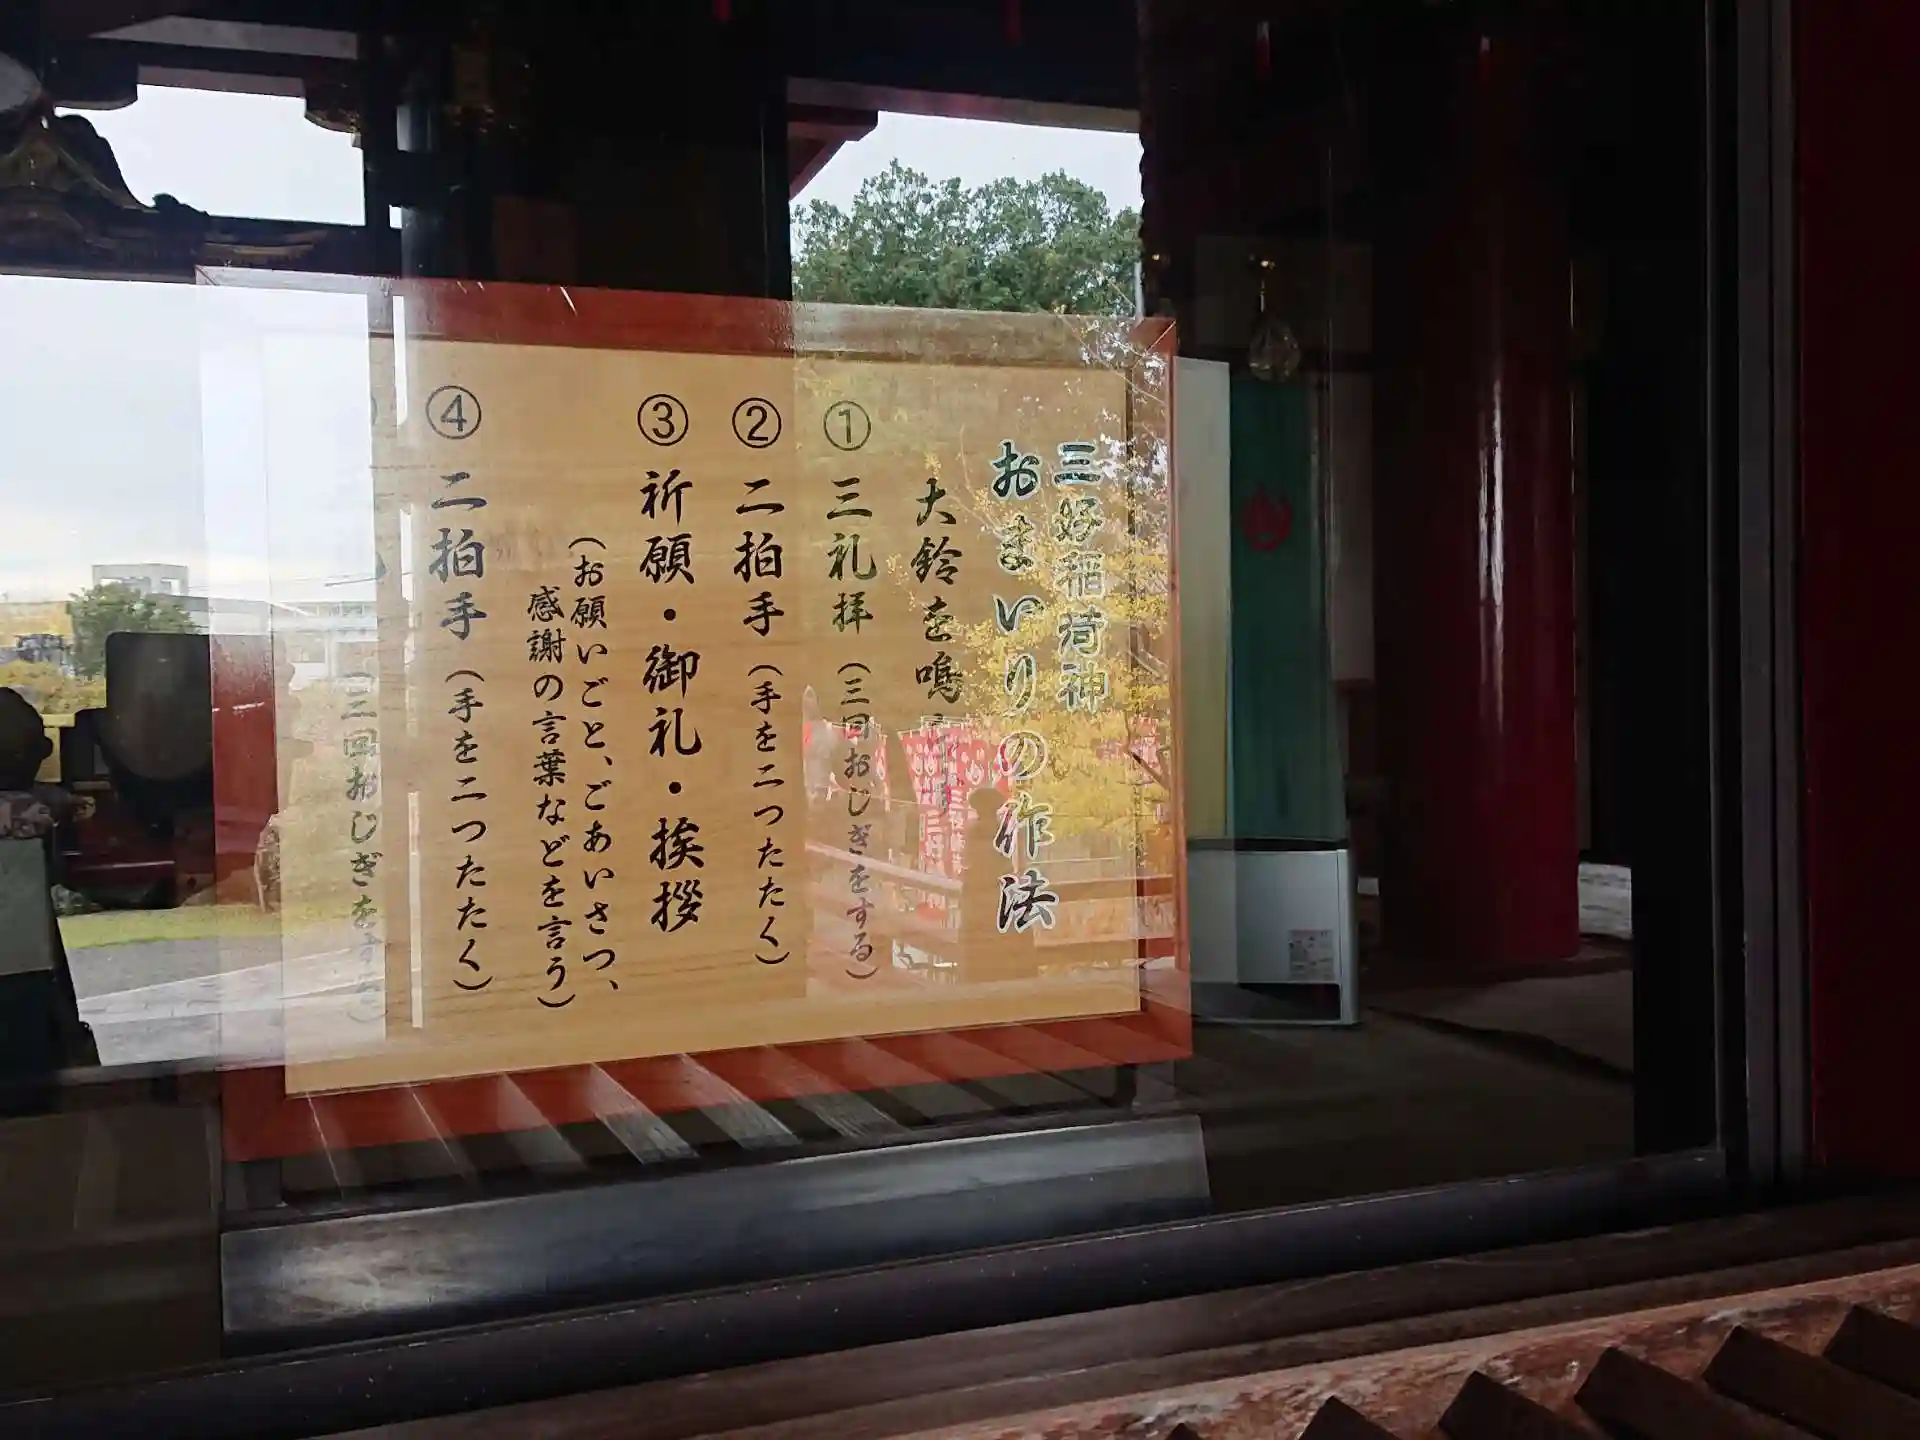 三好稲荷神
おまいりの作法
大鈴を鳴
① 三礼拝（三回おじぎをする）
② 二拍手（手を二つたたく）
③ 祈願・御礼・挨拶
（お願いごと、ごあいさつ、
感謝の言葉などを言う）
④ 二拍手（手を二つたたく）
（三回おじぎをする）